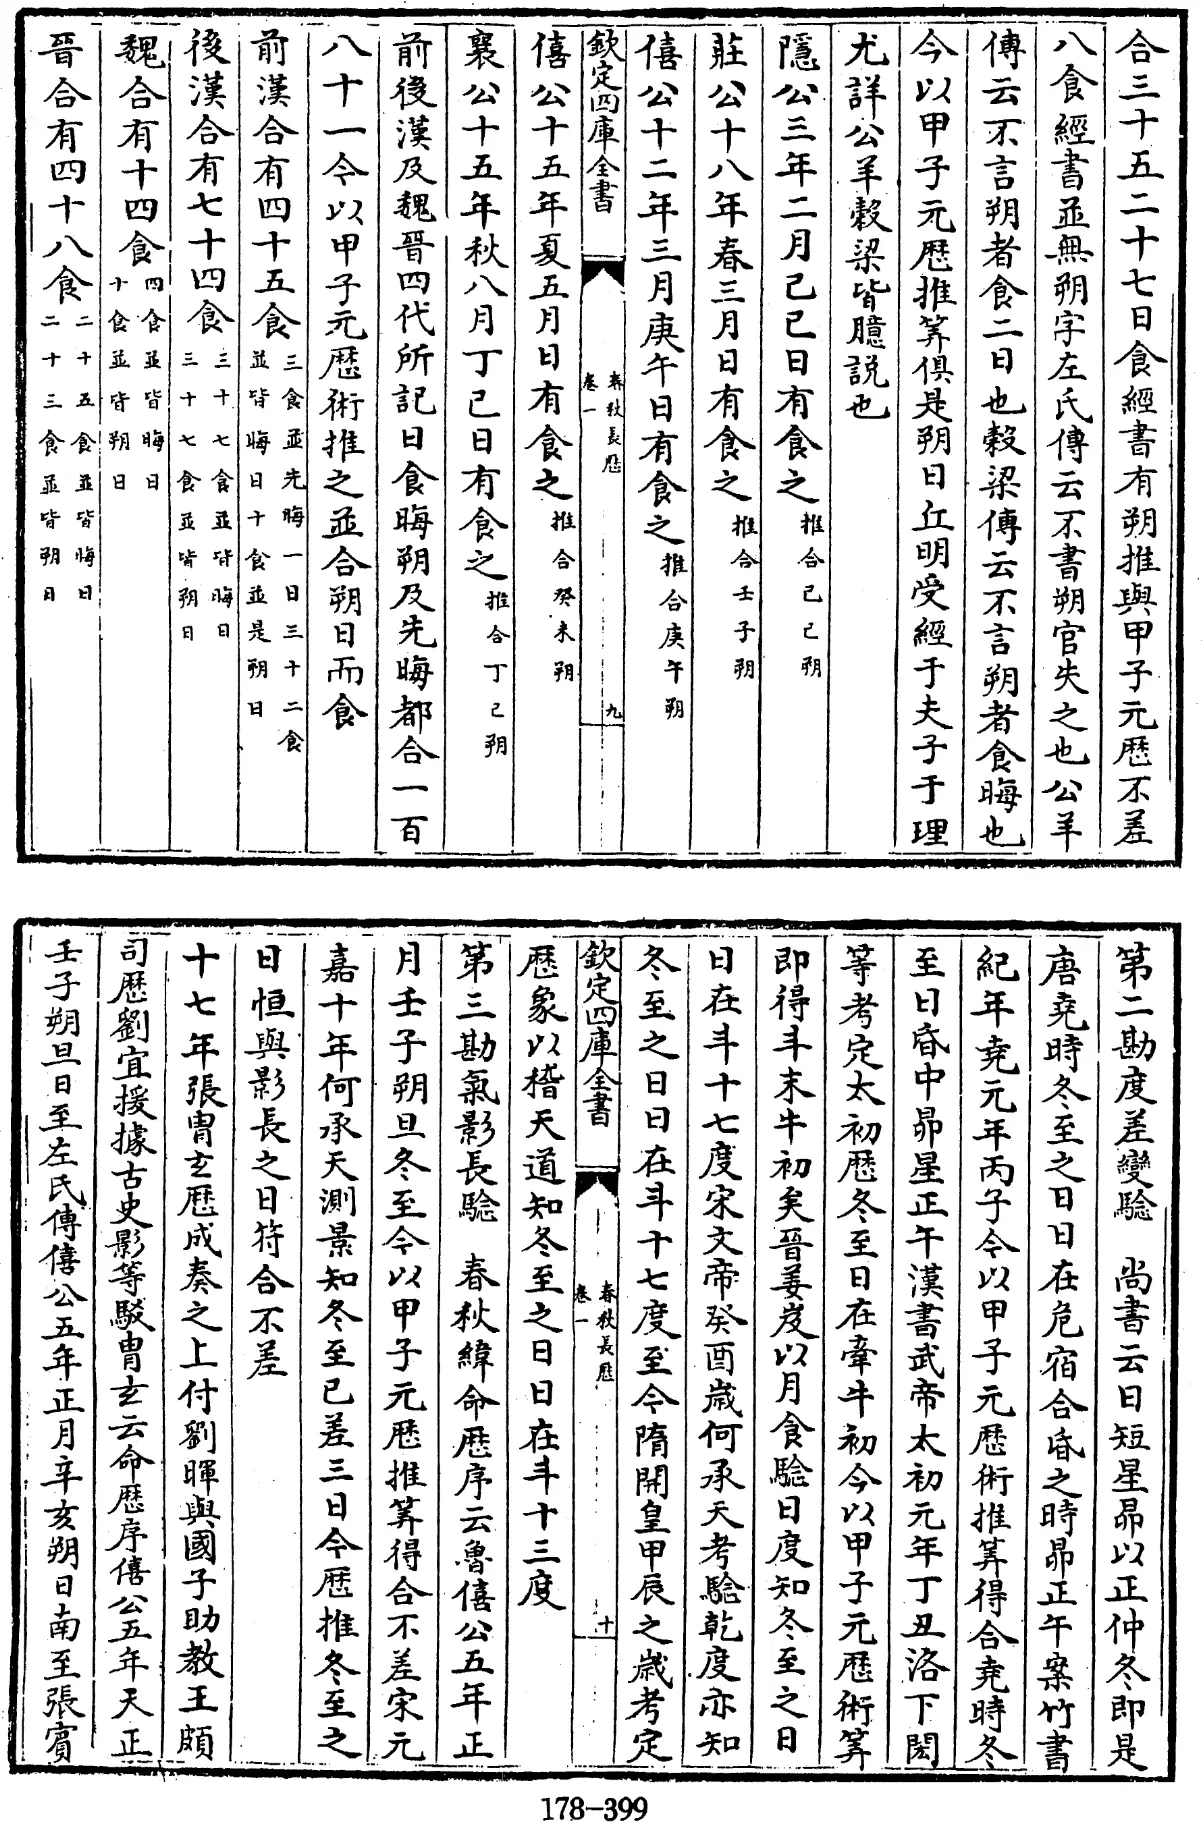 合三十五二十七日食經書有朔推與甲子元歴不差
八食經書並無朔字左氏傳云不書朔官失之也公羊
傳云不言朔者食二日也榖梁傳云不言朔者食晦也
今以甲子元歴推筭俱是朔日丘明受經于夫子于理
尤詳公羊穀梁皆臆説也
隱公三年二月己巳日有食之推合己巳朔
莊公十八年春三月日有食之推合壬子朔
僖公十二年三月庚午日有食之推合庚午朔
欽定四庫全書
春秋長歴
卷一
九
僖公十五年夏五月日有食之推合癸未朔
襄公十五年秋八月丁巳日有食之推合丁巳朔
前後漢及魏晉四代所記日食晦朔及先晦都合一百
八十一今以甲子元歴術推之並合朔日而食
前漢合有四十五食三食並先晦一日三十二食
並皆晦日十食並是朔日
後漢合有七十四食三十七食並皆晦日
三十七食並皆朔日
魏合有十四食四食並皆晦日
十食並皆朔日
晉合有四十八食二十五食並皆晦日
二十三食並皆朔日
第二勘度差變驗　尚書云日短星昴以正仲冬即是
唐堯時冬至之日日在危宿合昏之時昴正午案竹書
紀年堯元年丙子今以甲子元歴術推筭得合堯時冬
至日昏中昴星正午漢書武帝太初元年丁丑洛下閎
等考定太初歴冬至日在牽牛初今以甲子元歴術筭
即得斗末牛初矣晉姜岌以月食驗日度知冬至之日
日在斗十七度宋文帝癸酉歳何承天考驗乾度亦知
冬至之日日在斗十七度至今隋開皇甲辰之歳考定
欽定四庫全書
春秋長歴
卷一
十
歴象以稽天道知冬至之日日在斗十三度
第三勘氣影長驗　春秋緯命歴序云魯僖公五年正
月壬子朔旦冬至今以甲子元歴推筭得合不差宋元
嘉十年何承天測景知冬至已差三日今歴推冬至之
日恒與影長之日符合不差
十七年張胄玄歴成奏之上付劉暉與國子助教王頗
司歴劉宜援據古史影等駁胄玄云命歴序僖公五年天正
壬子朔旦日至左氏傳僖公五年正月辛亥朔日南至張賓
178-399